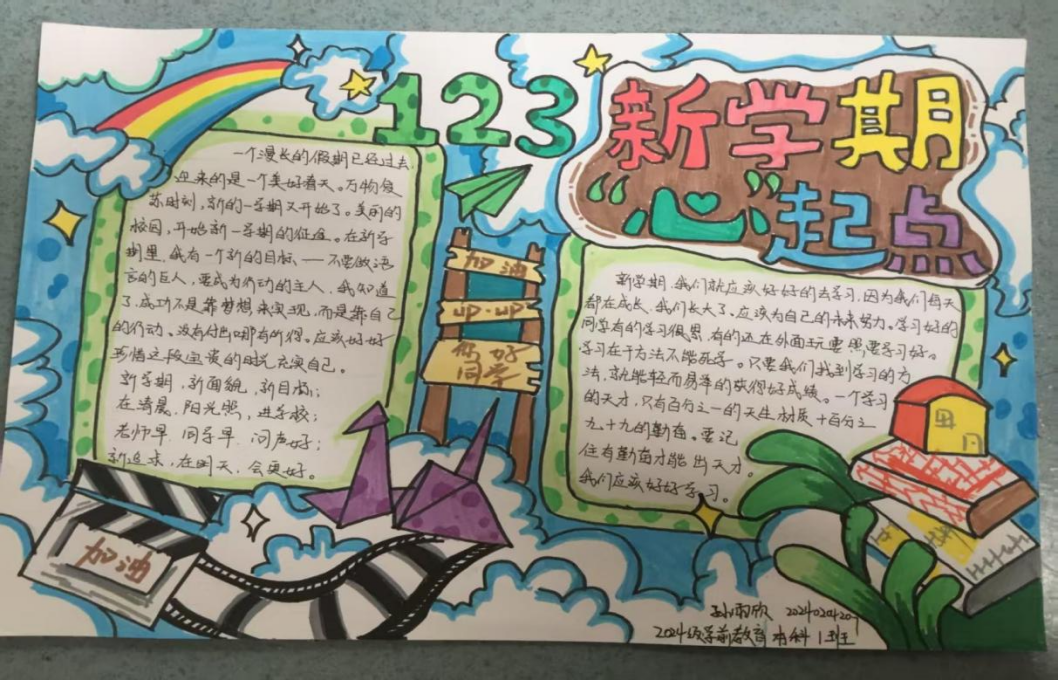 123
新学期
“心”起点
一个漫长的假期已经过去,
迎来的是一个美好春天。万物复
苏时刻,新的一学期又开始了。美丽的
校园,开始新一学期的征途。在新学
期里,我有一个新的目标——不要做语
言的巨人,要成为行动的主人,我知道
了,成功不是靠梦想来实现,而是靠自己
的行动。没有付出哪有的得。应该好好
珍惜这段宝贵的时光充实自己。
新学期,新面貌,新目标;
在清晨,阳光照,进学校;
老师早,同学早,问声好;
新追求,在明天,会更好。
加油
up·up
你好
同学
新学期,我们就应该好好的去学习,因为我们每天
都在成长,我们长大了,应该为自己的未来努力。学习好的
同学有的学习很累,有的还在外面玩耍,要学习好。
学习在于方法不能死学。只要我们找到学习的方
法,就能轻而易举的获得好成绩。一个学习
的天才,只有百分之一的天生材质,十百分之
九十九的勤奋。要记
住有勤奋才能出天才。
我们应该好好学习。
加油
孙雨欣
2024级学前教育本科1班